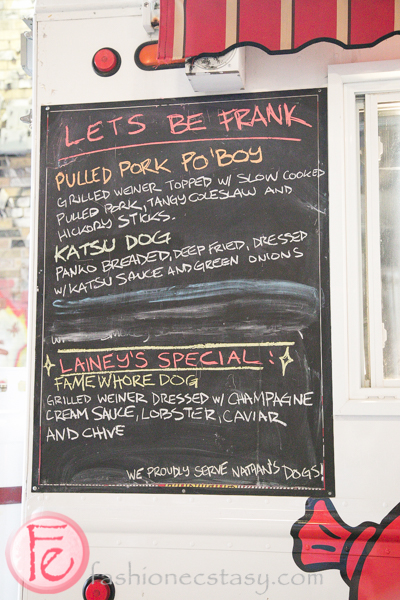 LETS BE FRANK
PULLED PORK PO'BOY
GRILLED WEINER TOPPED W/ SLOW COOKED
PULLED PORK, TANGY COLESLAW AND
HICKORY STICKS.
KATSU DOG
PANKO BREADED, DEEP FRIED, DRESSED
W/ KATSU SAUCE AND GREEN ONIONS
LAINEY'S SPECIAL!
FAMEWHORE DOG
GRILLED WEINER DRESSED W/ CHAMPAGNE
CREAM SAUCE, LOBSTER, CAVIAR
AND CHIVE
WE PROUDLY SERVE NATHAN'S DOGS!
Fe
fashionecstasy.com